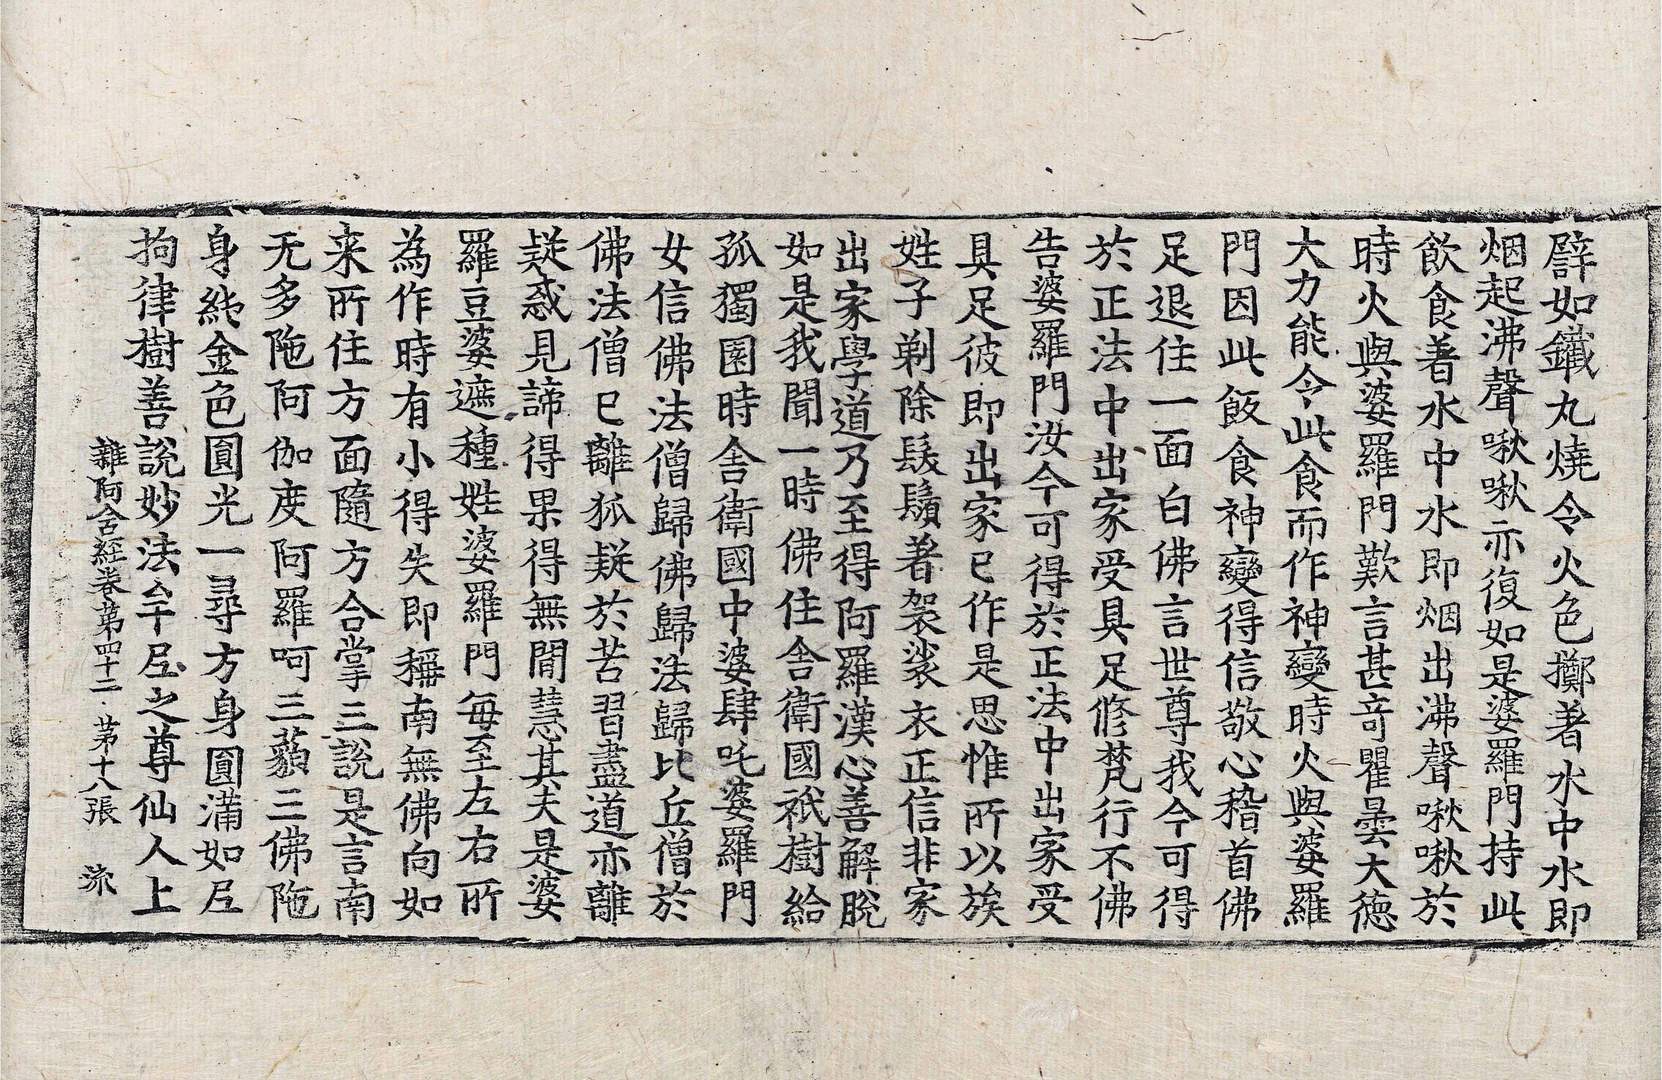 辟如鐵丸燒令火色擲著水中水即
烟起沸聲啾啾亦復如是婆羅門持此
飲食著水中水即烟出沸聲啾啾於
時火與婆羅門歎言甚奇瞿曇大德
大力能令此食而作神變時火與婆羅
門因此飯食神變得信敬心稽首佛
足退住一面白佛言世尊我今可得
於正法中出家受具足修梵行不佛
告婆羅門汝今可得於正法中出家受
具足彼即出家已作是思惟所以族
姓子剃除鬚髮著袈裟衣正信非家
出家學道乃至得阿羅漢心善解脫
如是我聞一時佛住舍衛國祇樹給
孤獨園時舍衛國中婆肆吒婆羅門
女信佛法僧歸佛歸法歸比丘僧於
佛法僧已離狐疑於苦習盡道亦離
疑惑見諦得果得無閒慧其夫是婆
羅豆婆遮種姓婆羅門每至左右所
為作時有小得失即稱南無佛向如
来所住方面隨方合掌三說是言南
无多陁阿伽度阿羅呵三藐三佛陁
身純金色圓光一尋方身圓滿如尼
拘律樹善說妙法牟尼之尊仙人上
雜阿含經卷第四十二 第十八張 流